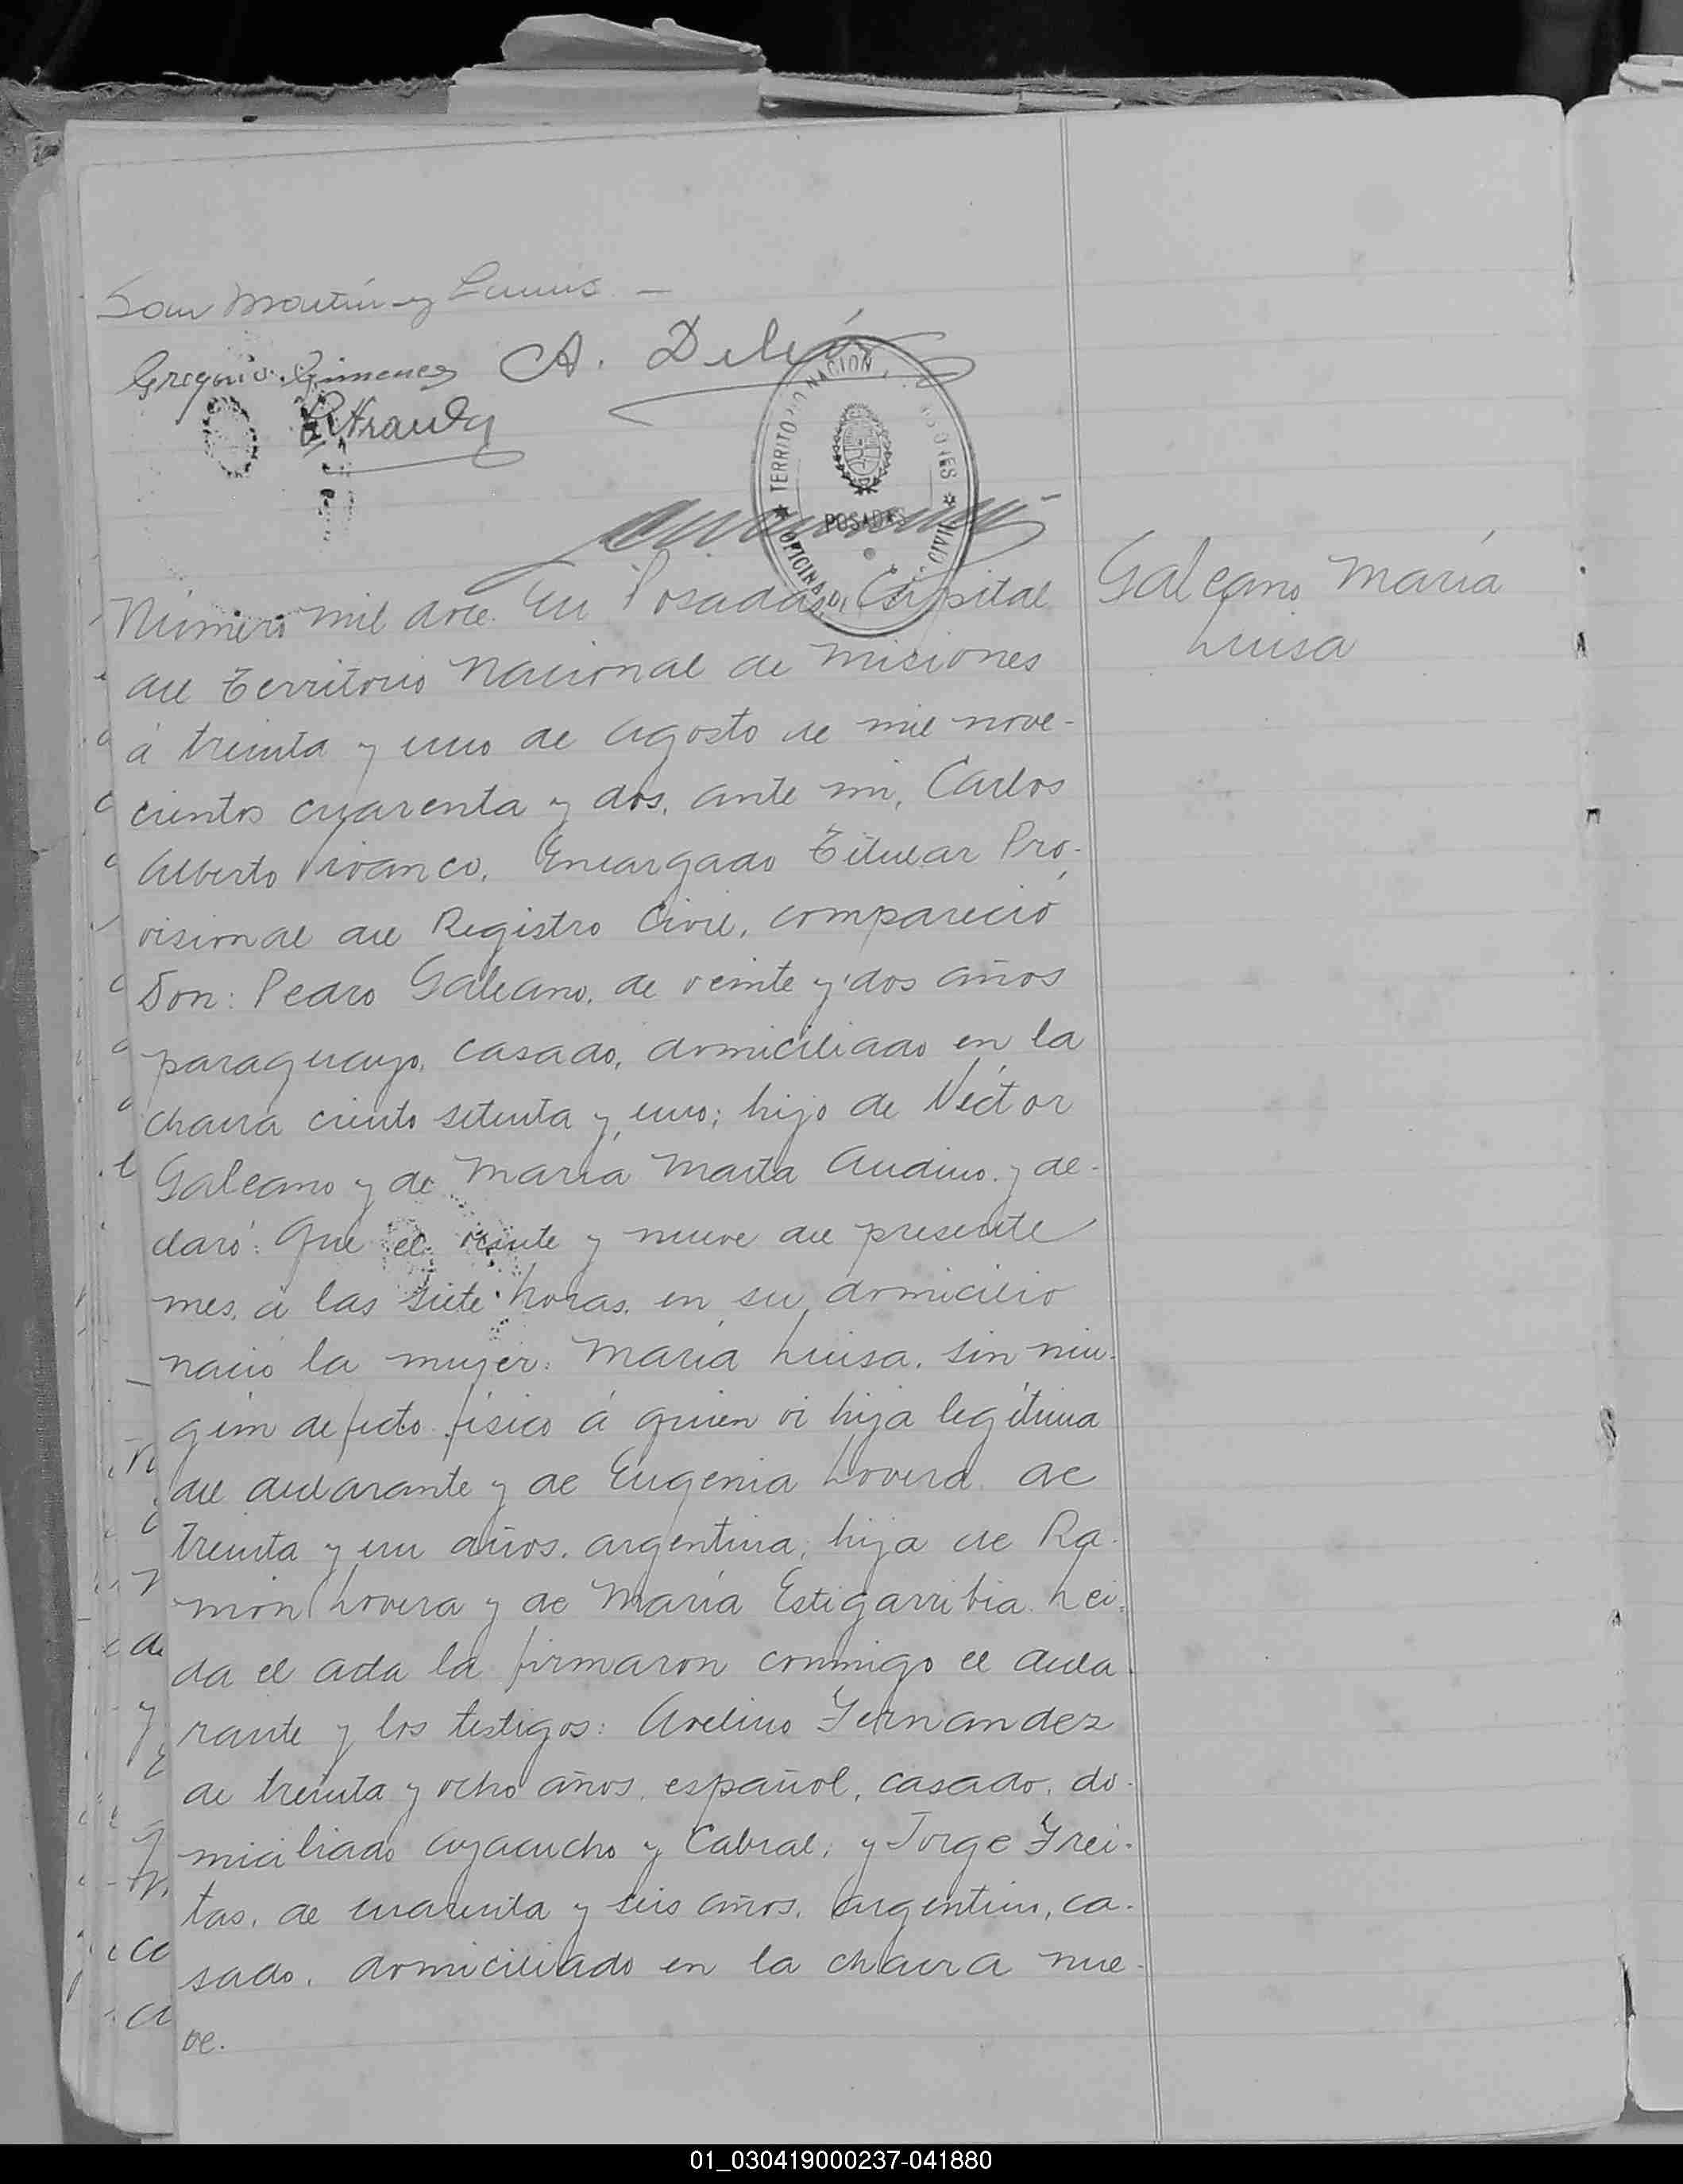 San Martin y
Gregorio Gimenez A. De León
TERRITORIO NACION MISIONES
POSADAS
OFICINA CIVIL
Número mil doce. En Posadas, Capital
del Territorio Nacional de Misiones
á treinta y uno de Agosto de mil nove-
cientos cuarenta y dos, ante mi, Carlos
Alberto Vivanco, Encargado Titular Pro-
visional del Registro Civil, compareció
Don: Pedro Galeano, de veinte y dos años
paraguayo, casado, domiciliado en la
chacra ciento setenta y uno; hijo de Víctor
Galeano y de María Marta Audino y de-
claró: Que el veinte y nueve del presente
mes, á las siete horas, en su domicilio
nació la mujer: María Luisa, sin nin-
gún defecto físico á quien vi hija legítima
del declarante y de Eugenia Lovera, de
treinta y un años, argentina, hija de Ra-
món Lovera y de María Estigarribia. Leí-
da el acta la firmaron conmigo el decla-
rante y los testigos: Avelino Fernandez
de treinta y ocho años, español, casado, do-
miciliado Ayacucho y Cabral; y Jorge Frei-
tas, de cuarenta y seis años, argentino, ca-
sado, domiciliado en la chacra nue-
ve.
Galeano María
Luisa
01_030419000237-041880